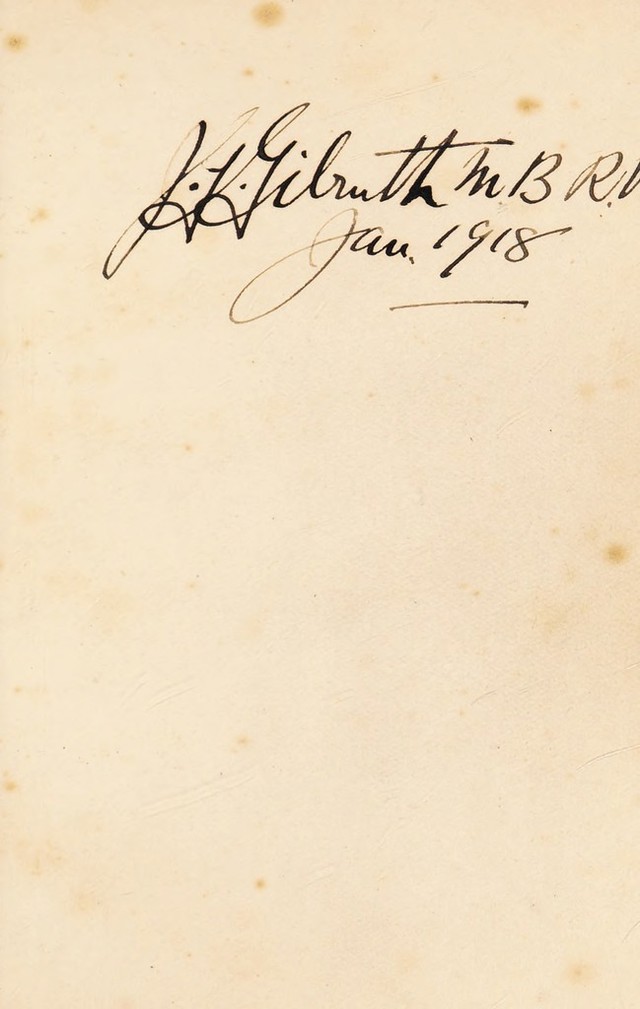 J. K. Gilruth M.B R.
Jan. 1918